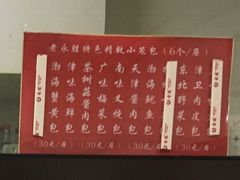 老永胜特色精致小笼包（6个/屉）
渤海蟹黄包
津味海鲜包
茶树菇酱肉包
广味梅菜包
南味叉烧包
天然菌汤包
渤海鱿鱼包
东北野菜包
津卫肉皮包
（30元/屉）（30元/屉）（30元/屉）（30元/屉）